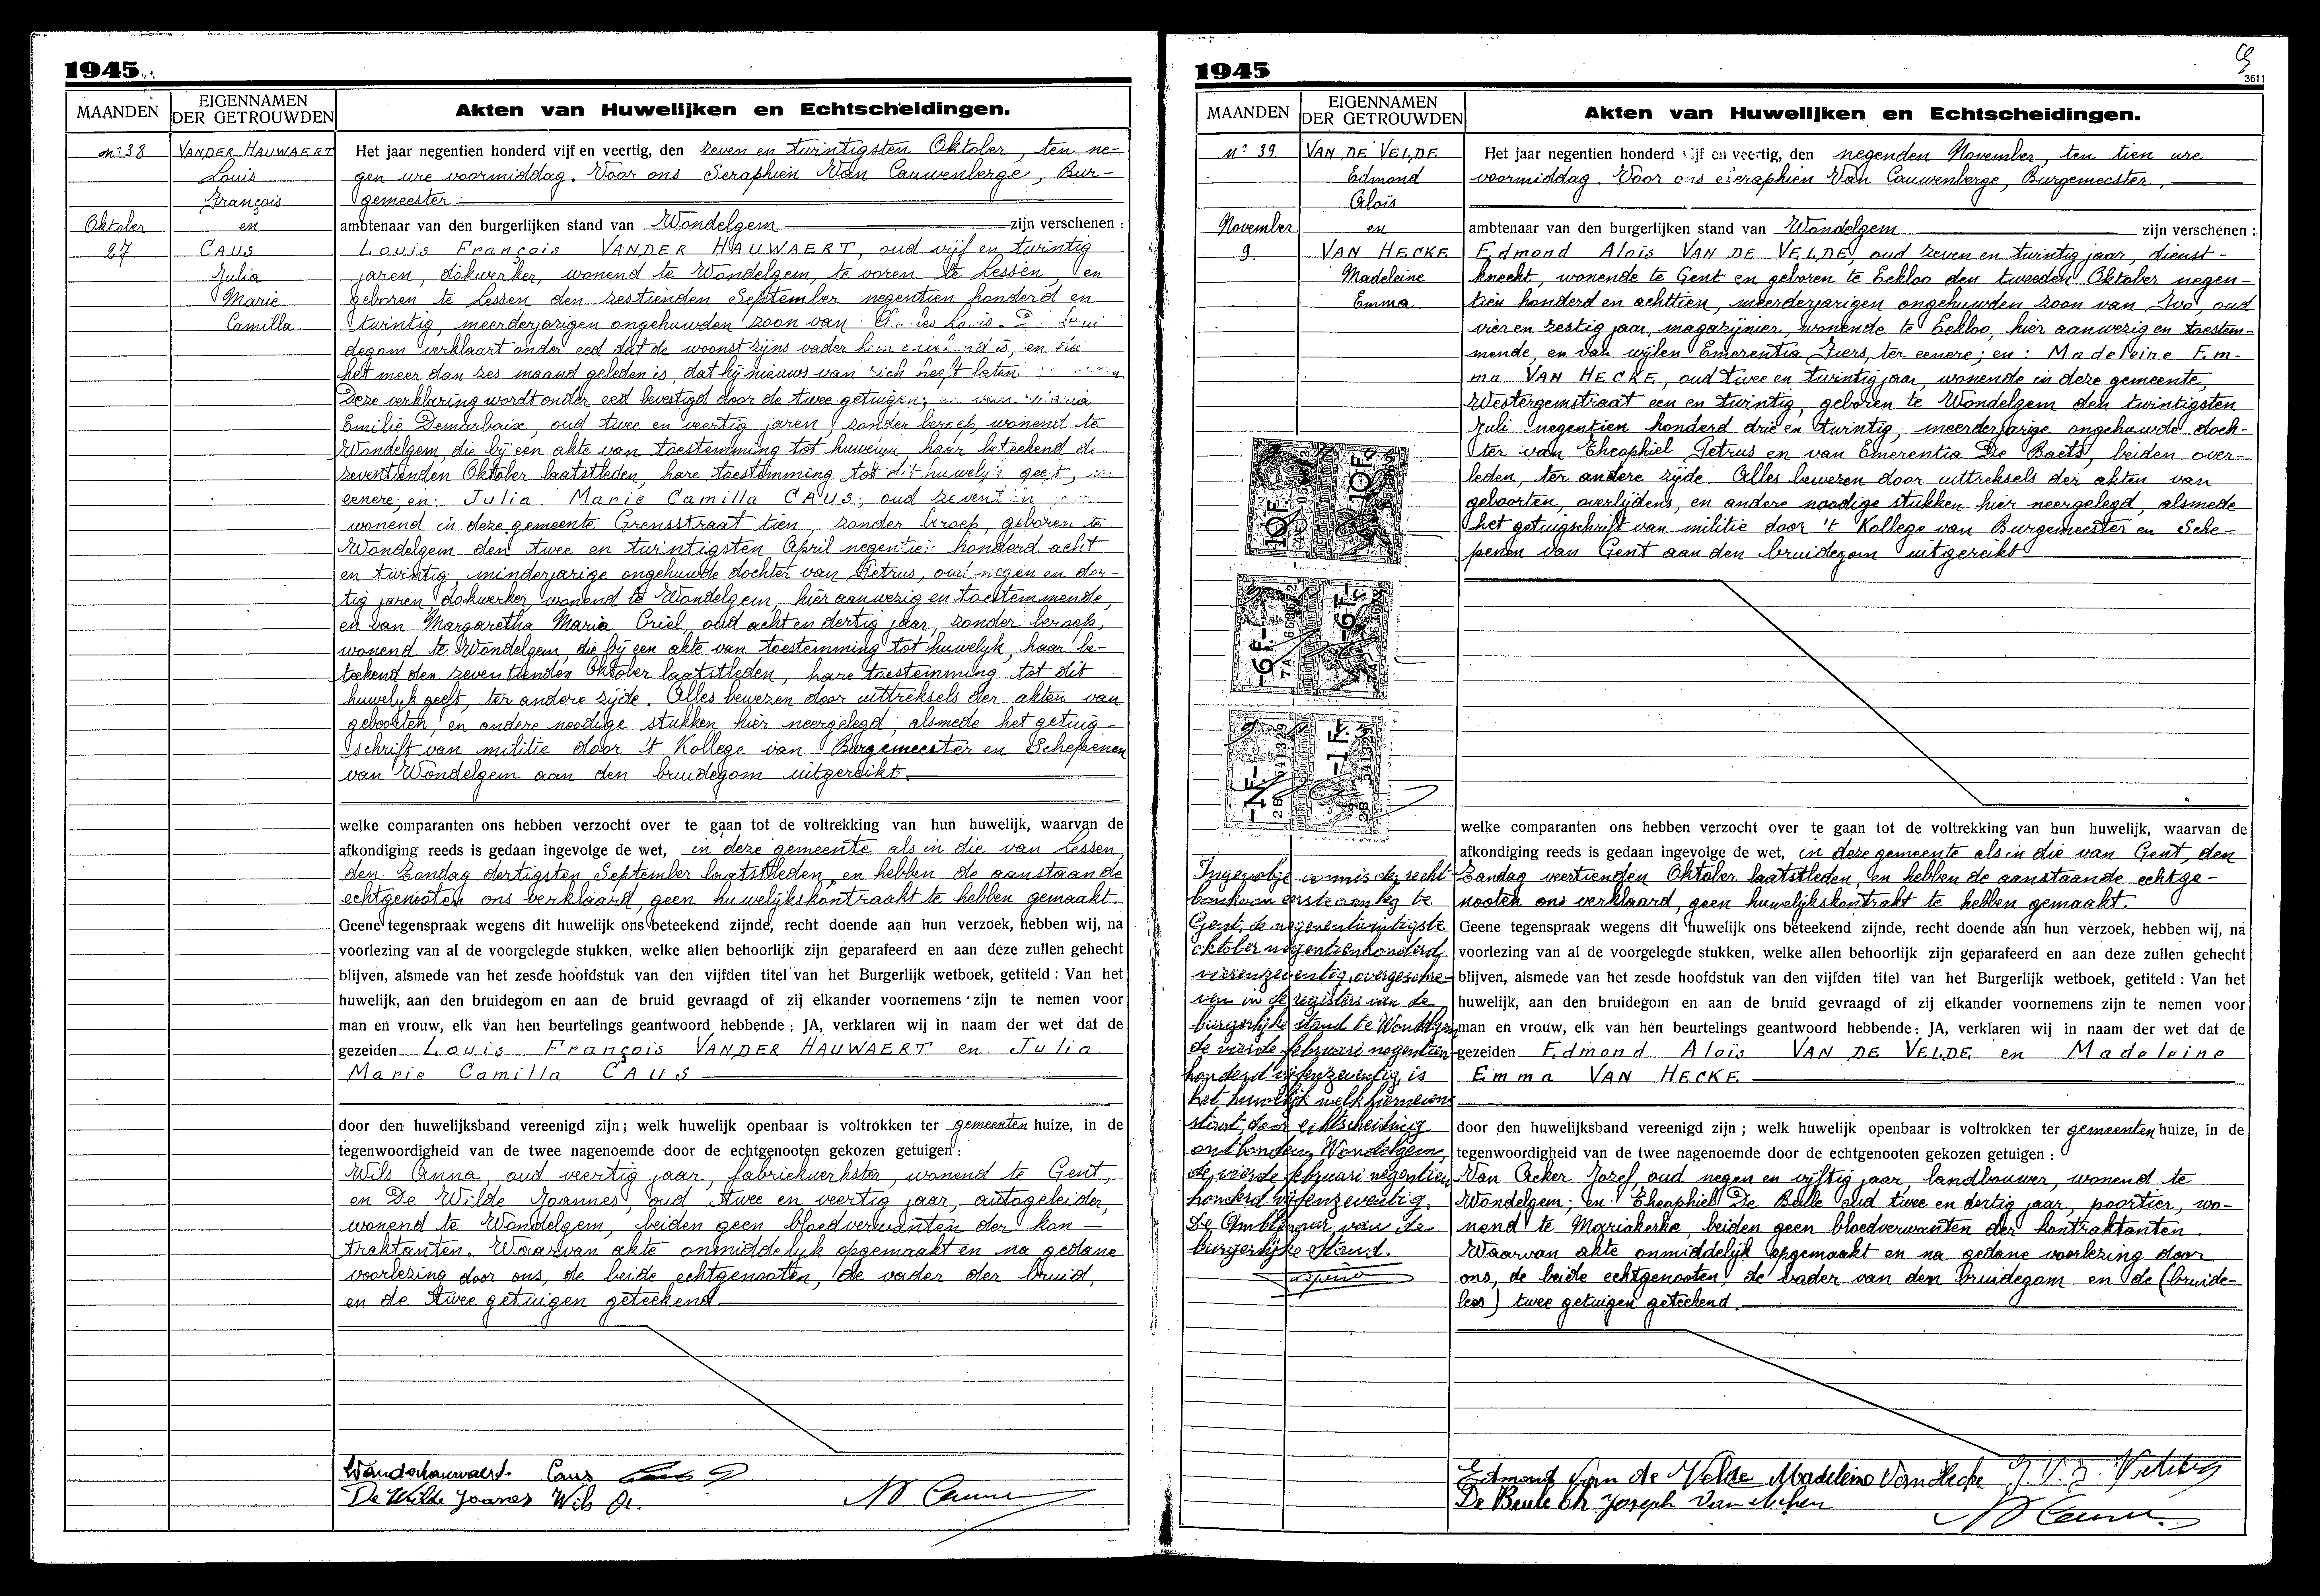 1945
MAANDEN
EIGENNAMEN
DER GETROUWDEN
Akten van Huwelijken en Echtscheidingen.
n° 38
Oktober
27
VANDER HAUWAERT
Louis
François
en
CAUS
Julia
Marie
Camilla
Het jaar negentien honderd vijf en veertig, den zeven en twintigsten Oktober, ten ne-
gen ure voormiddag. Voor ons Seraphien Van Cauwenberge, Bur-
gemeester
ambtenaar van den burgerlijken stand van Wondelgem zijn verschenen :
Louis François VANDER HAUWAERT, oud vijf en twintig
jaren, dokwerker, wonend te Wondelgem, te voren te Lessen, en
geboren te Lessen den zestienden September negentien honderd en
twintig, meerderjarigen ongehuwden zoon van
degom verklaart onder eed dat de woonst zijns vader hem onbekend is, en
het meer dan zes maand geleden is, dat hij nieuws van zich heeft laten
Deze verklaring wordt onder eed bevestigd door de twee getuigen; en van Maria
Emilie Demarbaix, oud twee en veertig jaren, zonder beroep, wonend te
Wondelgem, die bij een akte van toestemming tot huwelijk, haar beteekend de
zeventienden Oktober laatstleden, hare toestemming tot dit huwelijk geeft, ter
eenere; en: Julia Marie Camilla CAUS, oud zeventien
wonend in deze gemeente Grensstraat tien, zonder beroep, geboren te
Wondelgem den twee en twintigsten April negentien honderd acht
en twintig, minderjarige ongehuwde dochter van Petrus, oud negen en der-
tig jaren, dokwerker, wonend te Wondelgem, hier aanwezig en toestemmende,
en van Margaretha Maria Criel, oud acht en dertig jaar, zonder beroep,
wonend te Wondelgem, die bij een akte van toestemming tot huwelyk, haar be-
teekend den zeventienden Oktober laatstleden, hare toestemming tot dit
huwelyk geeft, ter andere zijde. Alles bewezen door uittreksels der akten van
geboorten, en andere noodige stukken hier neergelegd, alsmede het getuig-
schrift van militie door 't Kollege van Burgemeester en Schepenen
van Wondelgem aan den bruidegom uitgereikt.
welke comparanten ons hebben verzocht over te gaan tot de voltrekking van hun huwelijk, waarvan de
afkondiging reeds is gedaan ingevolge de wet, in deze gemeente als in die van Lessen,
den Zondag dertigsten September laatstleden, en hebben de aanstaande
echtgenooten ons verklaard, geen huwelijkskontraakt te hebben gemaakt.
Geene tegenspraak wegens dit huwelijk ons beteekend zijnde, recht doende aan hun verzoek, hebben wij, na
voorlezing van al de voorgelegde stukken, welke allen behoorlijk zijn geparafeerd en aan deze zullen gehecht
blijven, alsmede van het zesde hoofdstuk van den vijfden titel van het Burgerlijk wetboek, getiteld : Van het
huwelijk, aan den bruidegom en aan de bruid gevraagd of zij elkander voornemens zijn te nemen voor
man en vrouw, elk van hen beurtelings geantwoord hebbende : JA, verklaren wij in naam der wet dat de
gezeiden Louis François VANDER HAUWAERT en Julia
Marie Camilla CAUS
door den huwelijksband vereenigd zijn ; welk huwelijk openbaar is voltrokken ter gemeenten huize, in de
tegenwoordigheid van de twee nagenoemde door de echtgenooten gekozen getuigen :
Wils Anna, oud veertig jaar, fabriekwerkster, wonend te Gent,
en De Wilde Joannes, oud twee en veertig jaar, autogeleider,
wonend te Wondelgem, beiden geen bloedverwanten der kon-
traktanten. Waarvan akte onmiddelyk opgemaakt en na gedane
voorlezing door ons, de beide echtgenooten, de vader der bruid,
en de twee getuigen geteekend
Vanderhauwaert Caus
De Wilde Joannes Wils A.
1945
3611
MAANDEN
EIGENNAMEN
DER GETROUWDEN
Akten van Huwelijken en Echtscheidingen.
n° 39
November
9
VAN DE VELDE
Edmond
Aloïs
en
VAN HECKE
Madeleine
Emma
Het jaar negentien honderd vijf en veertig, den negenden November, ten tien ure
voormiddag. Voor ons Seraphien Van Cauwenberge, Burgemeester,
ambtenaar van den burgerlijken stand van Wondelgem zijn verschenen :
Edmond Aloïs VAN DE VELDE, oud zeven en twintig jaar, dienst-
knecht, wonende te Gent en geboren te Eekloo den tweeden Oktober negen-
tien honderd en achttien, meerderjarigen ongehuwden zoon van Ivo, oud
vier en zestig jaar, magazijnier, wonende te Eekloo, hier aanwezig en toestem-
mende, en van wijlen Emerentia Fiers, ter eenere; en: Madeleine Em-
ma VAN HECKE, oud twee en twintig jaar, wonende in deze gemeente,
Westergemstraat een en twintig, geboren te Wondelgem den twintigsten
Juli negentien honderd drie en twintig, meerderjarige ongehuwde doch-
ter van Theophiel Petrus en van Emerentia De Baets, beiden over-
leden, ter andere zijde. Alles bewezen door uittreksels der akten van
geboorten, overlijdens, en andere noodige stukken hier neergelegd, alsmede
het getuigschrift van militie door 't Kollege van Burgemeester en Sche-
penen van Gent aan den bruidegom uitgereikt
10F 10F
6F 6F
1F 1F
welke comparanten ons hebben verzocht over te gaan tot de voltrekking van hun huwelijk, waarvan de
afkondiging reeds is gedaan ingevolge de wet, in deze gemeente als in die van Gent, den
Zondag veertienden Oktober laatstleden, en hebben de aanstaande echtge-
nooten ons verklaard, geen huwelijkskontrakt te hebben gemaakt.
Geene tegenspraak wegens dit huwelijk ons beteekend zijnde, recht doende aan hun verzoek, hebben wij, na
voorlezing van al de voorgelegde stukken, welke allen behoorlijk zijn geparafeerd en aan deze zullen gehecht
blijven, alsmede van het zesde hoofdstuk van den vijfden titel van het Burgerlijk wetboek, getiteld : Van het
huwelijk, aan den bruidegom en aan de bruid gevraagd of zij elkander voornemens zijn te nemen voor
man en vrouw, elk van hen beurtelings geantwoord hebbende : JA, verklaren wij in naam der wet dat de
gezeiden Edmond Aloïs VAN DE VELDE en Madeleine
Emma VAN HECKE
door den huwelijksband vereenigd zijn ; welk huwelijk openbaar is voltrokken ter gemeenten huize, in de
tegenwoordigheid van de twee nagenoemde door de echtgenooten gekozen getuigen :
Van Acker Jozef, oud negen en vijftig jaar, landbouwer, wonend te
Wondelgem; en: Theophiel De Beule oud twee en dertig jaar, poortier, wo-
nend te Mariakerke, beiden geen bloedverwanten der kontraktanten.
Waarvan akte onmiddelijk opgemaakt en na gedane voorlezing door
ons, de beide echtgenooten, de vader van den bruidegom en de (bruide-
lees) twee getuigen geteekend.
Ingevolge vonnis der recht-
bank van eerste aanleg te
Gent, de negenentwintigste
oktober negentienhonderd
vierenzeventig, overgeschre-
ven in de registers van de
burgerlijke stand te Wondelgem
de vierde februari negentien
honderd vijfenzeventig is
het huwelijk welk hiernevens
staat, door echtscheiding
ontbonden, Wondelgem,
de vierde februari negentien
honderd vijfenzeventig.
De Ambtenaar van de
burgerlijke stand.
Edmond Van de Velde Madeleine Van Hecke
De Beule Th Joseph Van Acker